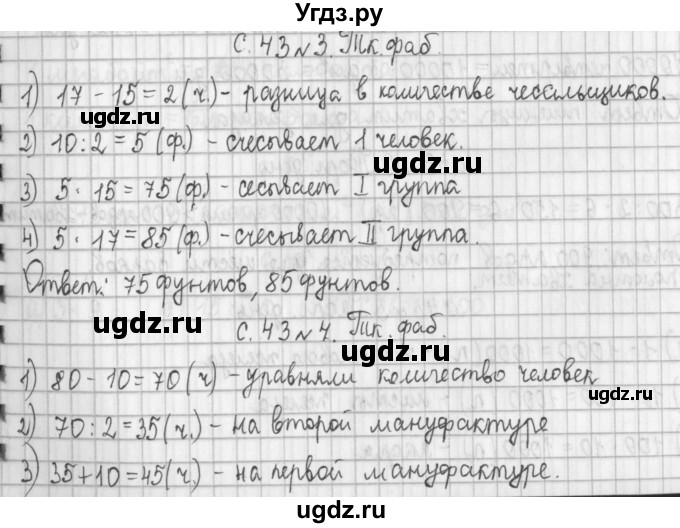 Угдз.ру
с. 43 №3. Тк. фаб.
1) 17 - 15 = 2 (ч.) - разница в количестве чесальщиков.
2) 10 : 2 = 5 (ф.) - счесывает 1 человек.
3) 5 · 15 = 75 (ф.) - сесывает I группа
4) 5 · 17 = 85 (ф.) - счесывает II группа.
Ответ: 75 фунтов, 85 фунтов.
с. 43 №4. Тк. фаб.
1) 80 - 10 = 70 (ч) - уравняли количество человек
2) 70 : 2 = 35 (ч.) - на второй мануфактуре
3) 35 + 10 = 45 (ч.) - на первой мануфактуре.
ugdz.ru
ugdz.ru
ugdz.ru
ugdz.ru
ugdz.ru
ugdz.ru
ugdz.ru
ugdz.ru
ugdz.ru